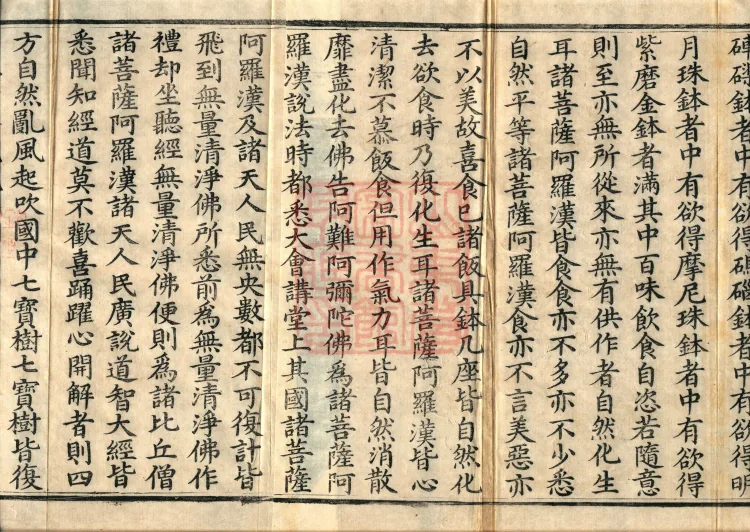 硨磲鉢者中有欲得碼碯鉢者中有欲得明
月珠鉢者中有欲得摩尼珠鉢者中有欲得
紫磨金鉢者滿其中百味飲食自恣若隨意
則至亦無所從來亦無有供作者自然化生
耳諸菩薩阿羅漢皆食食亦不多亦不少悉
自然平等諸菩薩阿羅漢食亦不言美惡亦
不以美故喜食已諸飯具鉢几座皆自然化
去欲食時乃復化生耳諸菩薩阿羅漢皆心
清潔不慕飯食但用作氣力耳皆自然消散
靡盡化去佛告阿難阿彌陀佛為諸菩薩阿
羅漢說法時都悉大會講堂上其國諸菩薩
阿羅漢及諸天人民無央數都不可復計皆
飛到無量清淨佛所悉前為無量清淨佛作
禮却坐聽經無量清淨佛便則爲諸比丘僧
諸菩薩阿羅漢諸天人民廣說道智大經皆
悉聞知經道莫不歡喜踊躍心開解者則四
方自然亂風起吹國中七寶樹七寶樹皆復